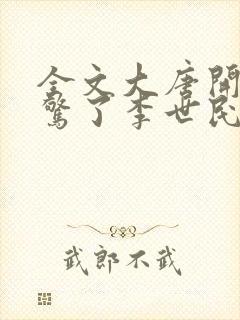 全文大唐開
驚了李世民
武郎不武